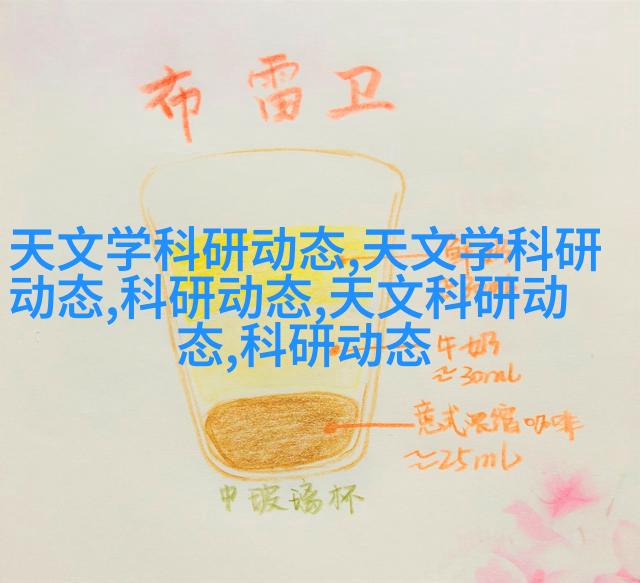 布雷卫
天文学科研动态,天文学科研
动态,科研动态,天文科研动
态,科研动态
牛奶
≈30ml
意式浓缩咖啡
≈25ml
中玻璃杯